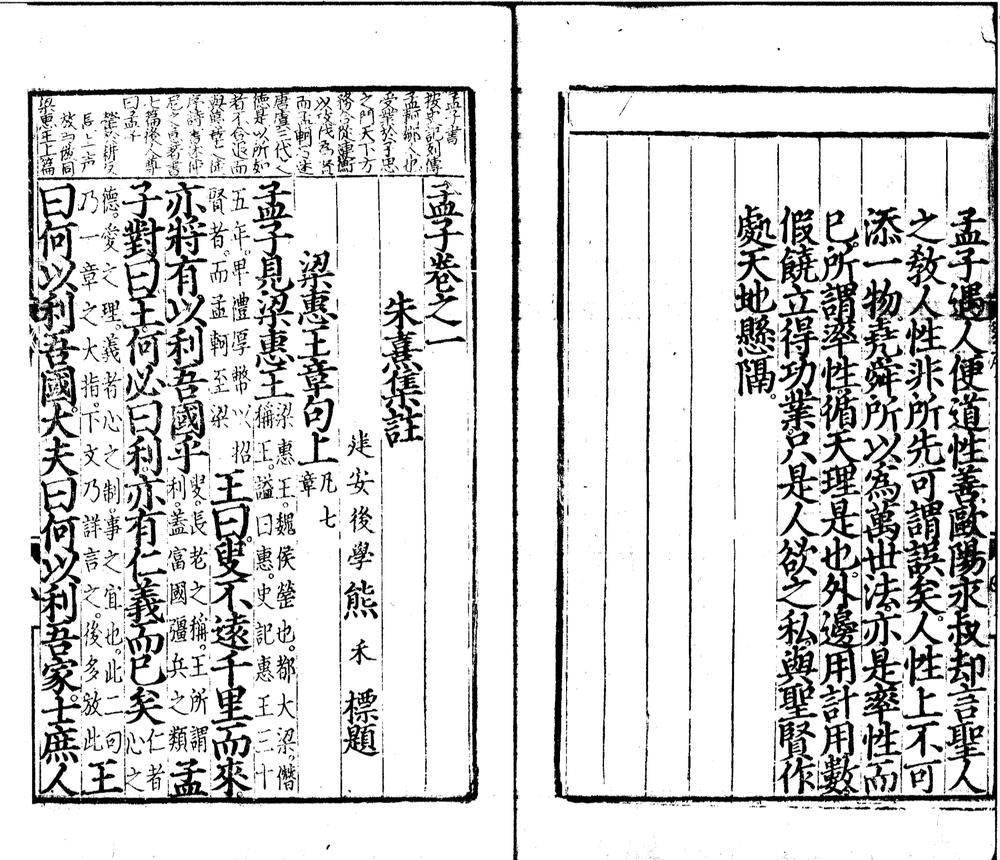 孟子遇人便道性善歐陽永叔却言聖人
之教人性非所先可謂誤矣。人性上不可
添一物堯舜所以爲萬世法。亦是率性而
已。所謂率性。循天理是也。外邊用計用數。
假饒立得功業。只是人欲之私。與聖賢作
處天地懸隔。
孟子書
按史記列傳
孟軻鄒人也
受業於子思
之門天下方
務合從連衡
以攻伐爲賢
而孟軻乃述
唐虞三代之
德是以所如
者不合退而
與萬章之徒
序詩書述仲
尼之意著書
七篇後人尊
曰孟子
罃於耕反
長上声
放與倣同
梁惠王上篇
孟子卷之一
朱熹集註
建安後學熊禾標題
梁惠王章句上 凡七章
孟子見梁惠王 梁惠王。魏侯罃也。都大梁。僭稱王。謚曰惠。史記惠王三十
五年。卑禮厚幣以招賢者。而孟軻至梁 王曰。叟不遠千里而來。
亦將有以利吾國乎 叟。長老之稱。王所謂利。蓋富國彊兵之類 孟
子對曰。王何必曰利。亦有仁義而已矣 仁者心之
德。愛之理。義者心之制。事之宜也。此二句乃一章之大指。下文乃詳言之。後多放此 王
曰何以利吾國。大夫曰何以利吾家。士庶人